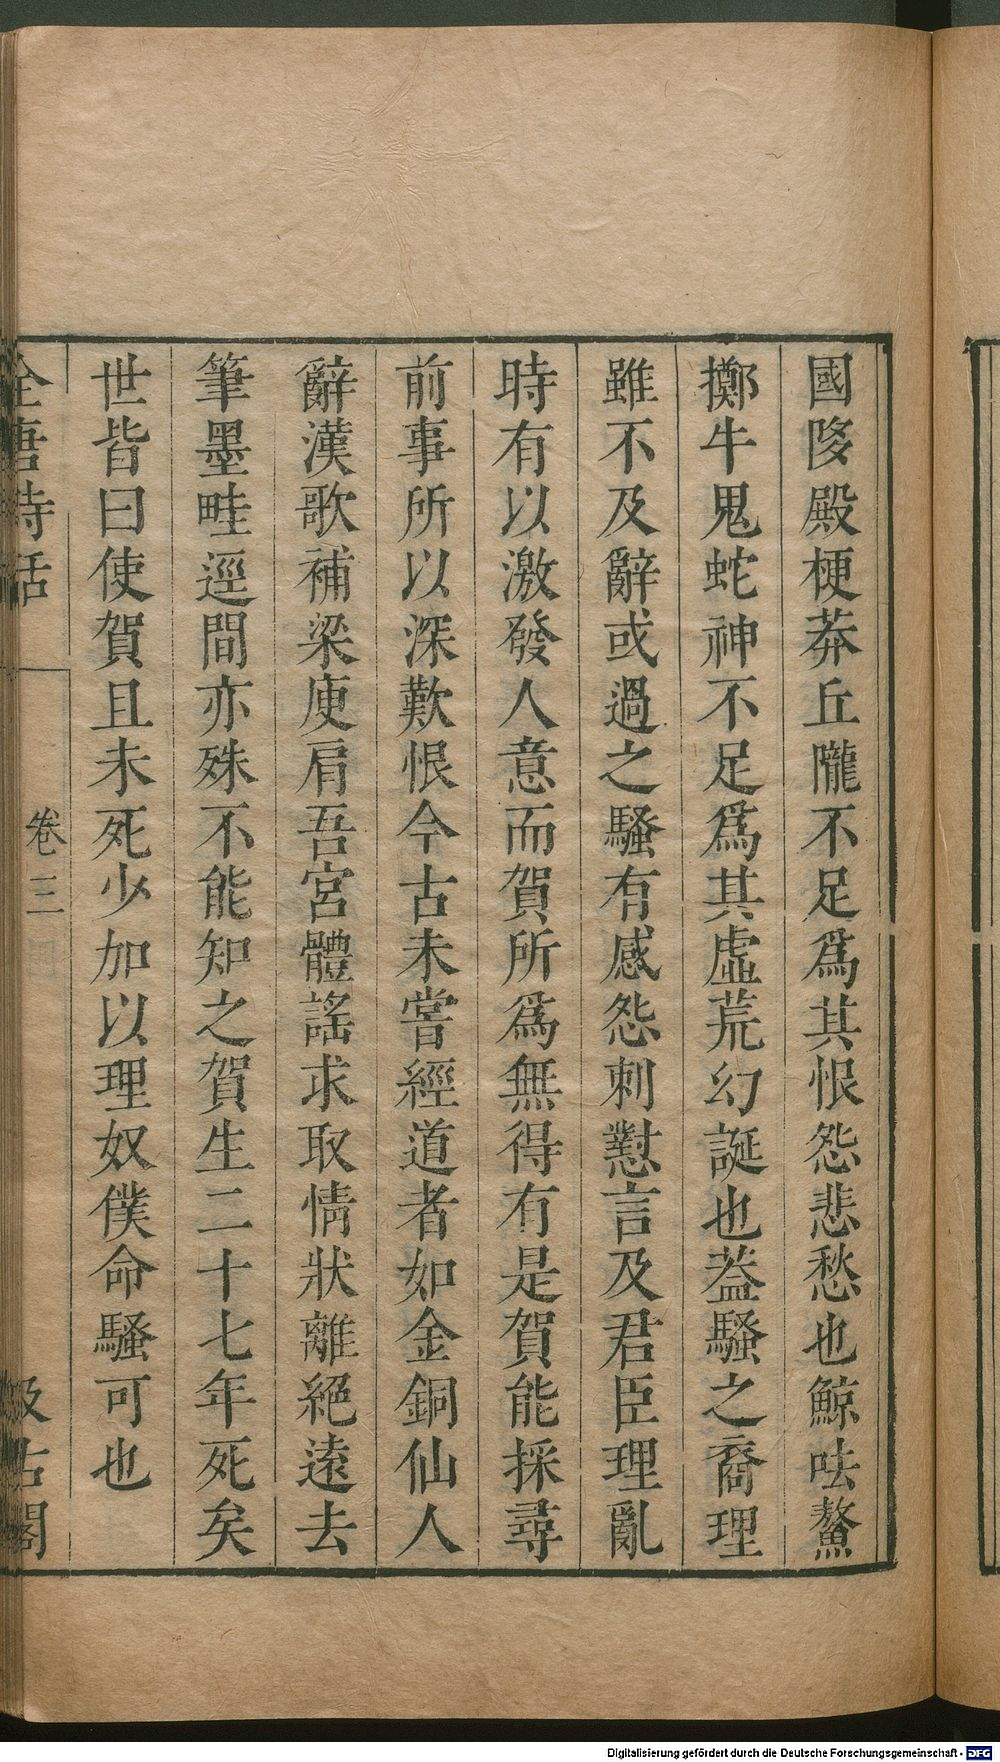 國陊殿梗莽丘隴不足爲其恨怨悲愁也鯨呿鰲
擲牛鬼蛇神不足爲其虛荒幻誕也葢騷之裔理
雖不及辭或過之騷有感怨刺懟言及君臣理亂
時有以激發人意而賀所爲無得有是賀能採尋
前事所以深歎恨今古未嘗經道者如金銅仙人
辭漢歌補梁庾肩吾宮體謠求取情狀離絕遠去
筆墨畦逕間亦殊不能知之賀生二十七年死矣
世皆曰使賀且未死少加以理奴僕命騷可也
全唐詩話 卷三 汲古閣
Digitalisierung gefördert durch die Deutsche Forschungsgemeinschaft - DFG